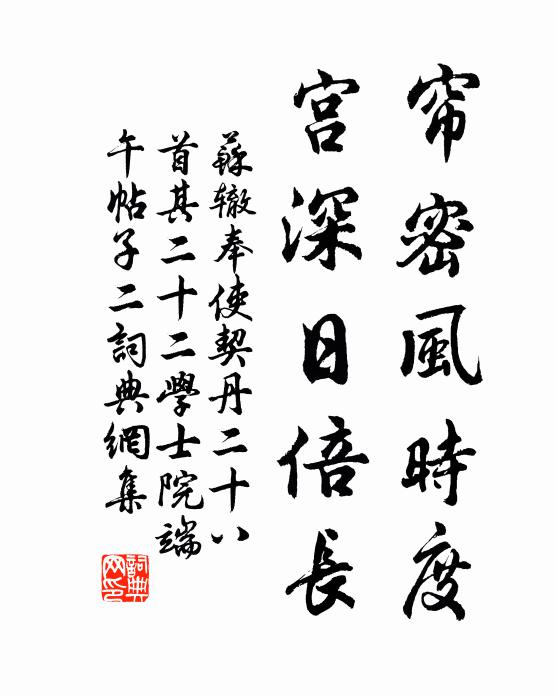 帘密風時度
宫深日倍長
蘇辙奉使契丹二十八
首其二十二學士院端
午帖子二詞典網集
詞典网印